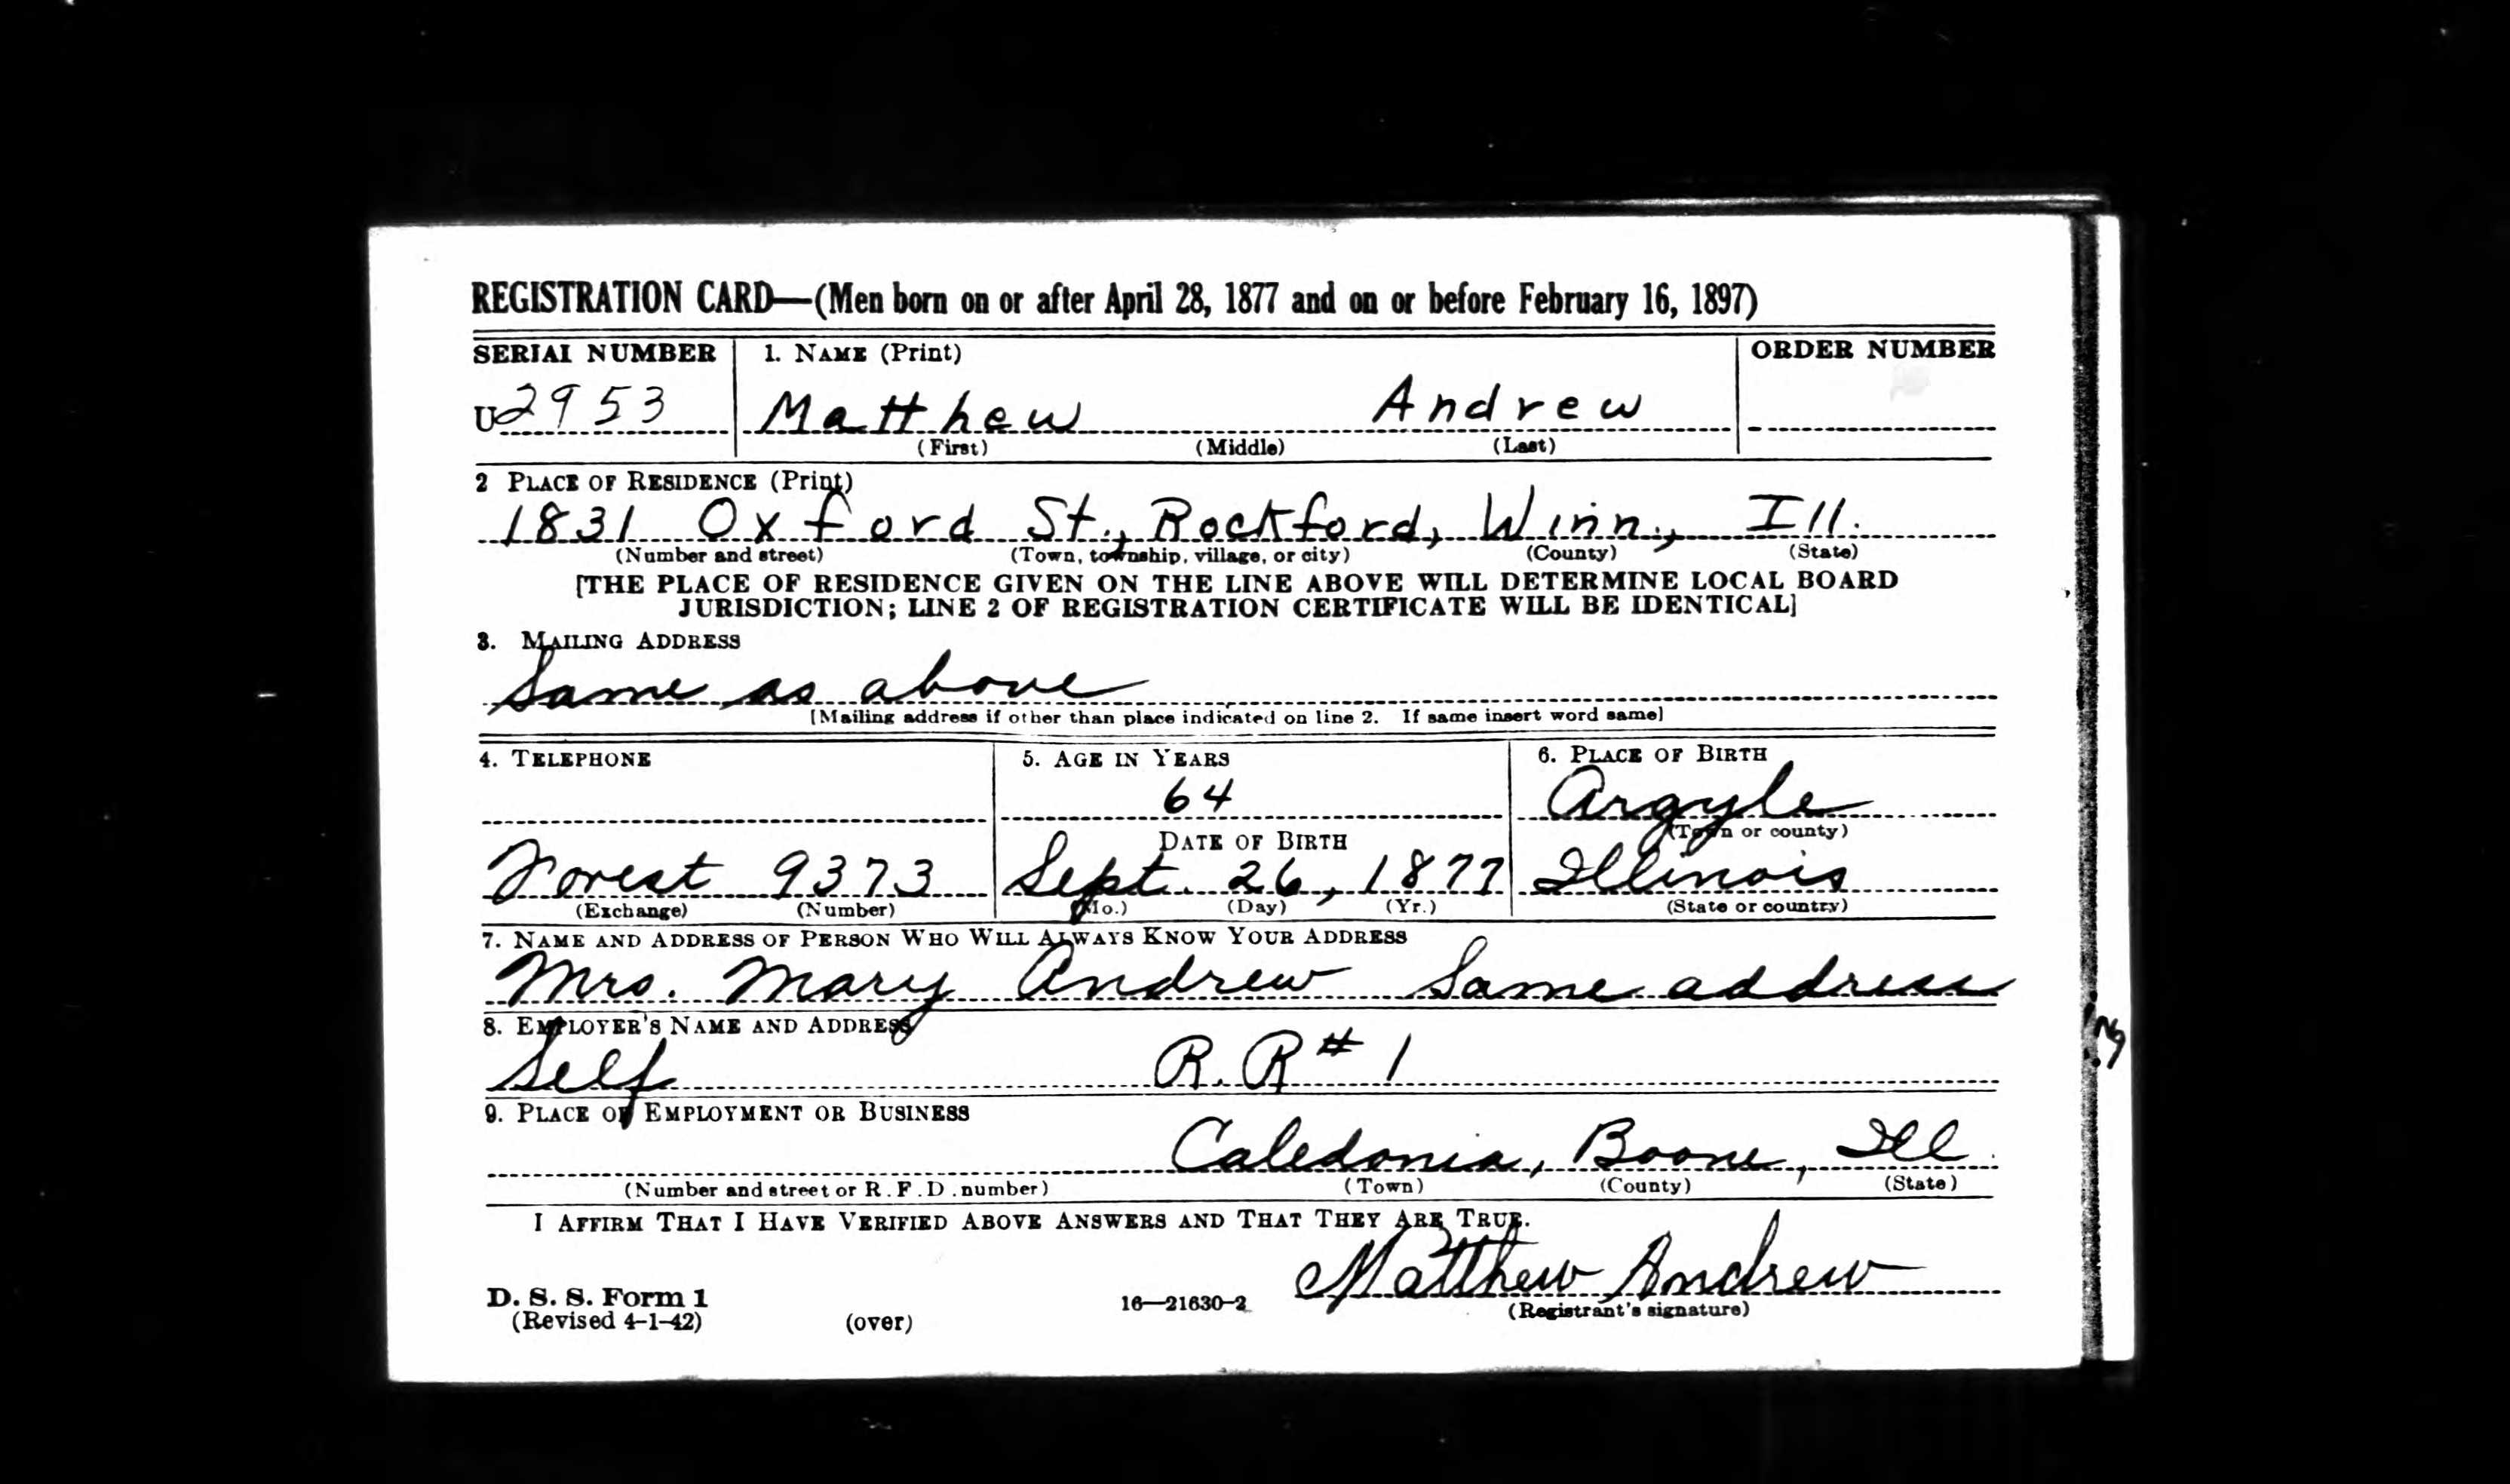 REGISTRATION CARD—(Men born on or after April 28, 1877 and on or before February 16, 1897)
SERIAL NUMBER 1. NAME (Print) ORDER NUMBER
U 2953 Matthew Andrew
(First) (Middle) (Last)
2 PLACE OF RESIDENCE (Print)
1831 Oxford St., Rockford, Winn., Ill.
(Number and street) (Town, township, village, or city) (County) (State)
[THE PLACE OF RESIDENCE GIVEN ON THE LINE ABOVE WILL DETERMINE LOCAL BOARD
JURISDICTION; LINE 2 OF REGISTRATION CERTIFICATE WILL BE IDENTICAL]
3. MAILING ADDRESS
Same as above
[Mailing address if other than place indicated on line 2. If same insert word same]
4. TELEPHONE 5. AGE IN YEARS 6. PLACE OF BIRTH
64 Argyle
DATE OF BIRTH (Town or county)
Forest 9373 Sept. 26, 1877 Illinois
(Exchange) (Number) (Mo.) (Day) (Yr.) (State or country)
7. NAME AND ADDRESS OF PERSON WHO WILL ALWAYS KNOW YOUR ADDRESS
Mrs. Mary Andrew Same address
8. EMPLOYER'S NAME AND ADDRESS
Self R.R # 1
9. PLACE OF EMPLOYMENT OR BUSINESS
Caledonia, Boone, Ill.
(Number and street or R. F. D. number) (Town) (County) (State)
I AFFIRM THAT I HAVE VERIFIED ABOVE ANSWERS AND THAT THEY ARE TRUE.
Matthew Andrew
D. S. S. Form 1 16—21630-2 (Registrant's signature)
(Revised 4-1-42) (over)